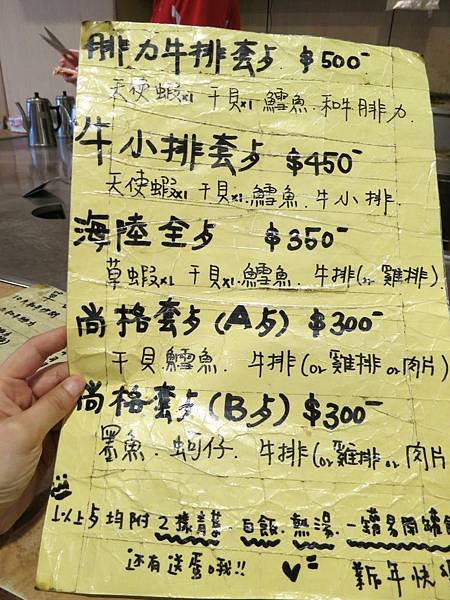 腓力牛排套歺 $500-
天使蝦x1 干貝x1.鱈魚.和牛腓力.
牛小排套歺 $450-
天使蝦x1 干貝x1.鱈魚.牛小排.
海陸全歺 $350-
草蝦x1 干貝x1.鱈魚.牛排(or 雞排)
尚格套歺(A歺) $300-
干貝.鱈魚. 牛排(or雞排or肉片)
尚格套歺(B歺) $300-
墨魚.蚵仔. 牛排(or雞排or肉片
以上歺均附2樣青菜.白飯.熱湯.一罐易開罐
還有送蛋哦!! 新年快